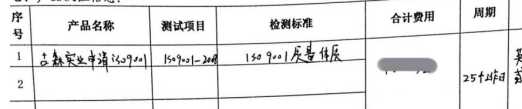 序号 产品名称 测试项目 检测标准 合计费用 周期
1 森实业申请iso9001 ISO9001-2008 ISO 9001 质量体系
25个工作日
2